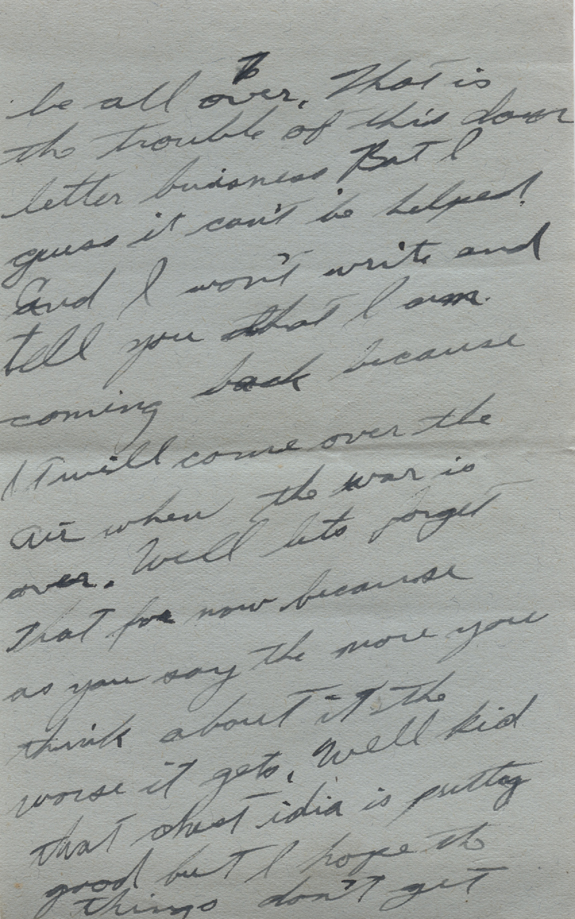 be all over. That is
the trouble of this darn
letter buisness But I
guess it can't be helped.
And I won't write and
tell you that I am
coming back because
It will come over the
air when the war is
over. Well lets forget
that for now because
as you say the more you
think about it the
worse it gets. Well kid
that chest idia is putty
good but I hope th
things don't get